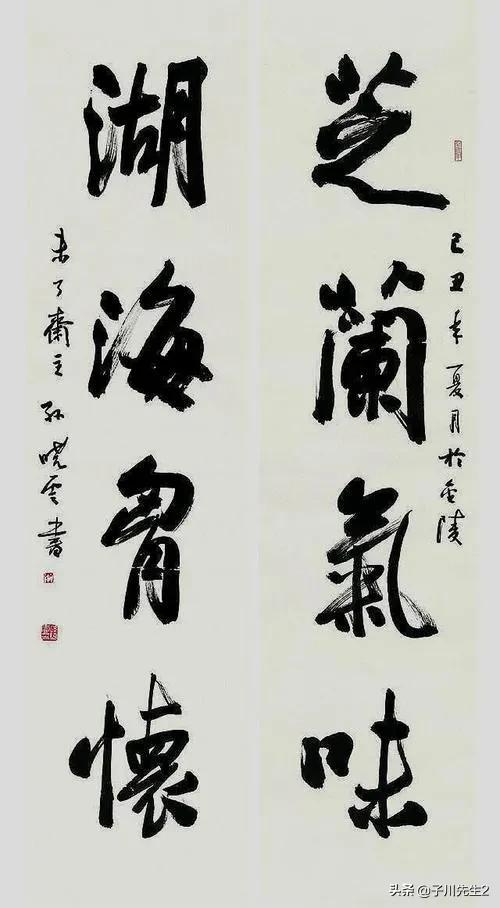 芝蘭氣味
己丑年夏月於金陵
湖海胷懷
未了齋主孙曉雲書
头条@子川先生2